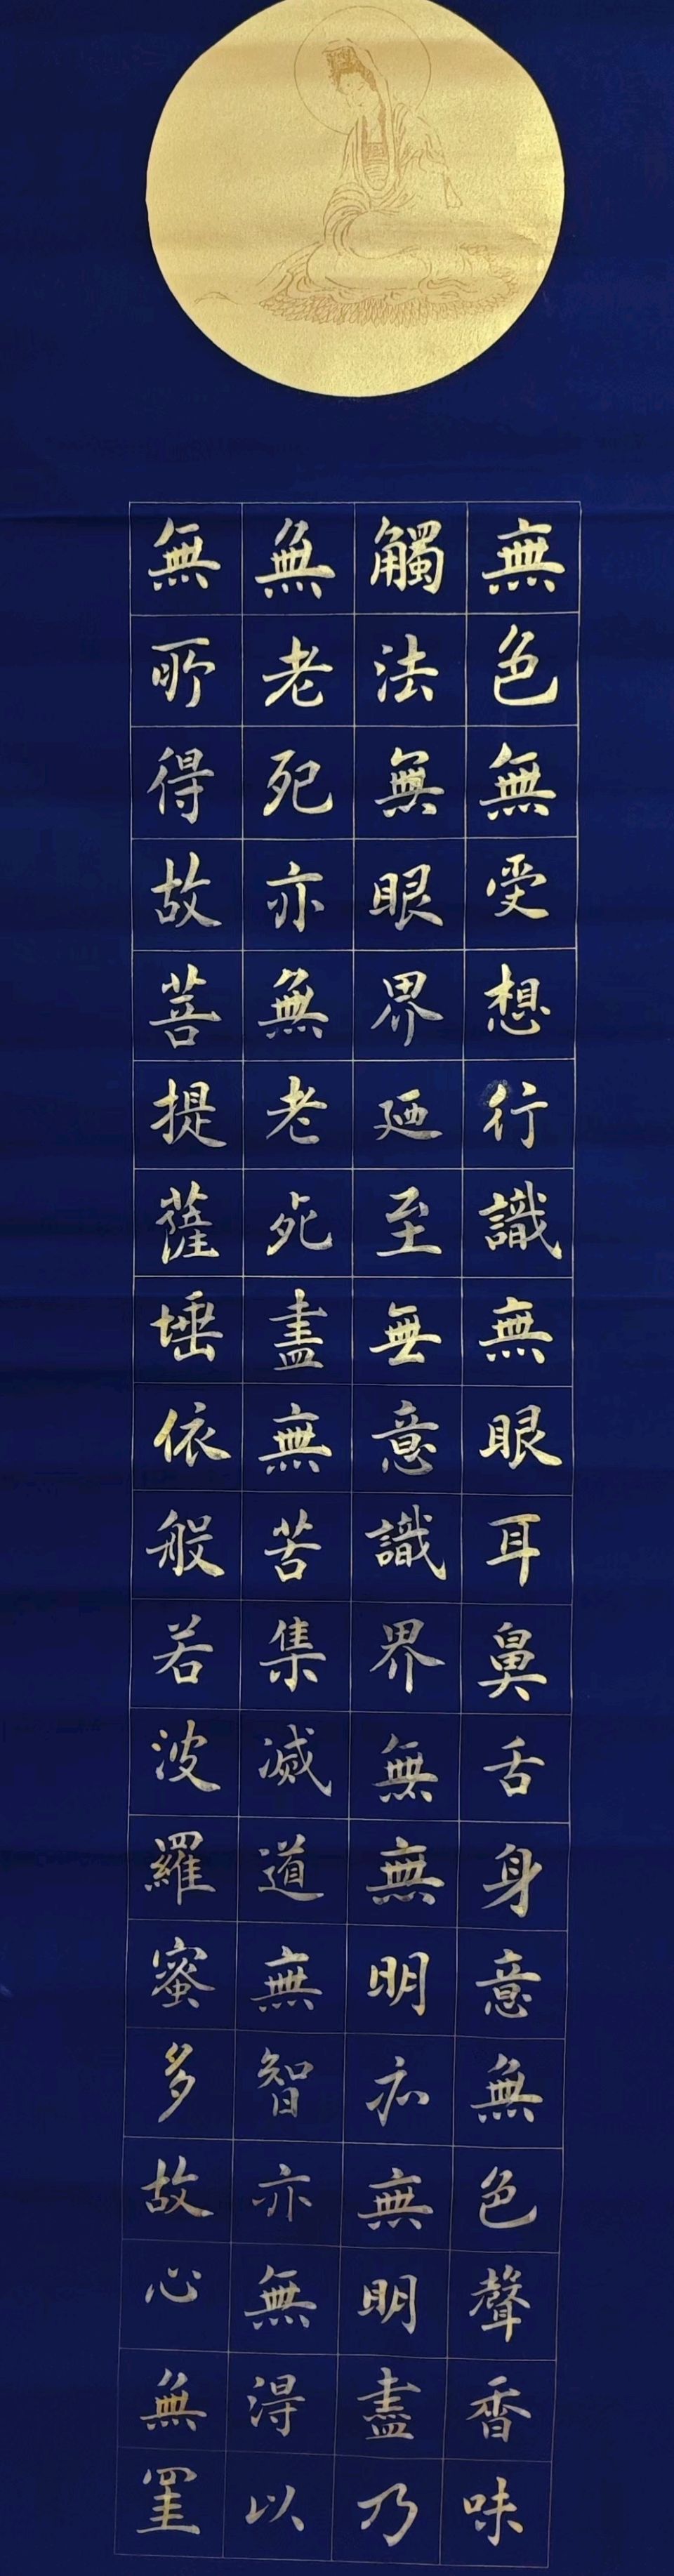 無色無受想行識無眼耳鼻舌身意無色聲香味
觸法無眼界廼至無意識界無無明亦無明盡乃
無老死亦無老死盡無苦集滅道無智亦無得以
無所得故菩提薩埵依般若波羅蜜多故心無罣